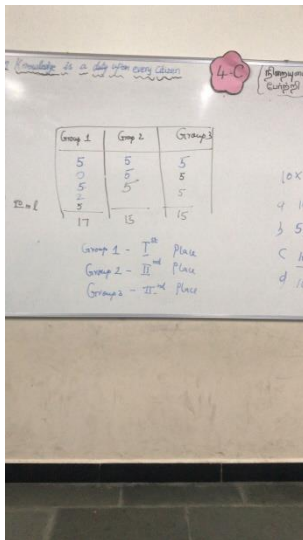 Knowledge is a duty upon every citizen
4-C
Group 1 Group 2 Group 3
5 5 5
0 5 5
5 5 5
2
5
17 15 15
10x
a
b 5
c
d
Group 1 - Ist Place
Group 2 - IInd Place
Group 2 - IInd Place